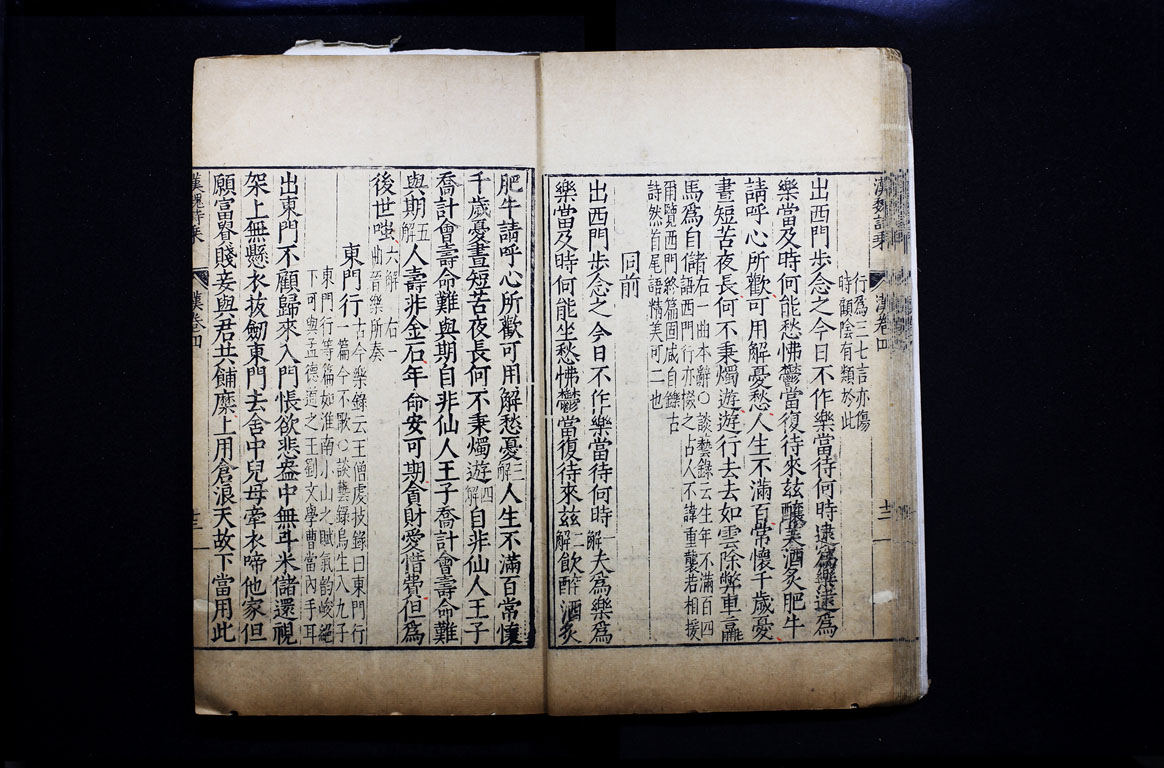 漢魏詩乘
漢卷四
十二
行爲三七言亦傷
時顧陰有類於此
出西門步念之今日不作樂當待何時逮爲樂逮爲
樂當及時何能愁怫鬱當復待來茲釀美酒炙肥牛
請呼心所歡可用解憂愁人生不滿百常懷千歲憂
晝短苦夜長何不秉燭遊遊行去去如雲除弊車羸
馬爲自儲右一曲本辭○談藝錄云生年不滿百四
語西門行亦掇之占人不諱重襲若相援
爾覽西門終篇固咸自鑠古
詩然首尾語精美可二也
同前
出西門步念之今日不作樂當待何時一解夫爲樂爲
樂當及時何能坐愁怫鬱當復待來茲二解飲醉酒炙
肥牛請呼心所歡可用解愁憂三解人生不滿百常懷
千歲憂晝短苦夜長何不秉燭遊四解自非仙人王子
喬計會壽命難與期自非仙人王子喬計會壽命難
與期五解人壽非金石年命安可期貪財愛惜費但爲
後世嗤六解右一曲晉樂所奏
東門行古今樂錄云王僧虔技錄曰東門行
一篇今不歌○談藝錄烏生八九子
東門行等篇如淮南小山之賦氣韵峻絕
下可與孟德道之王劉文學曹當內手耳
出東門不顧歸來入門悵欲悲盎中無斗米儲還視
架上無懸衣拔劒東門去舍中兒母牽衣啼他家但
願富貴賤妾與君共餔糜上用倉浪天故下當用此
漢魏詩乘
漢卷四
十三